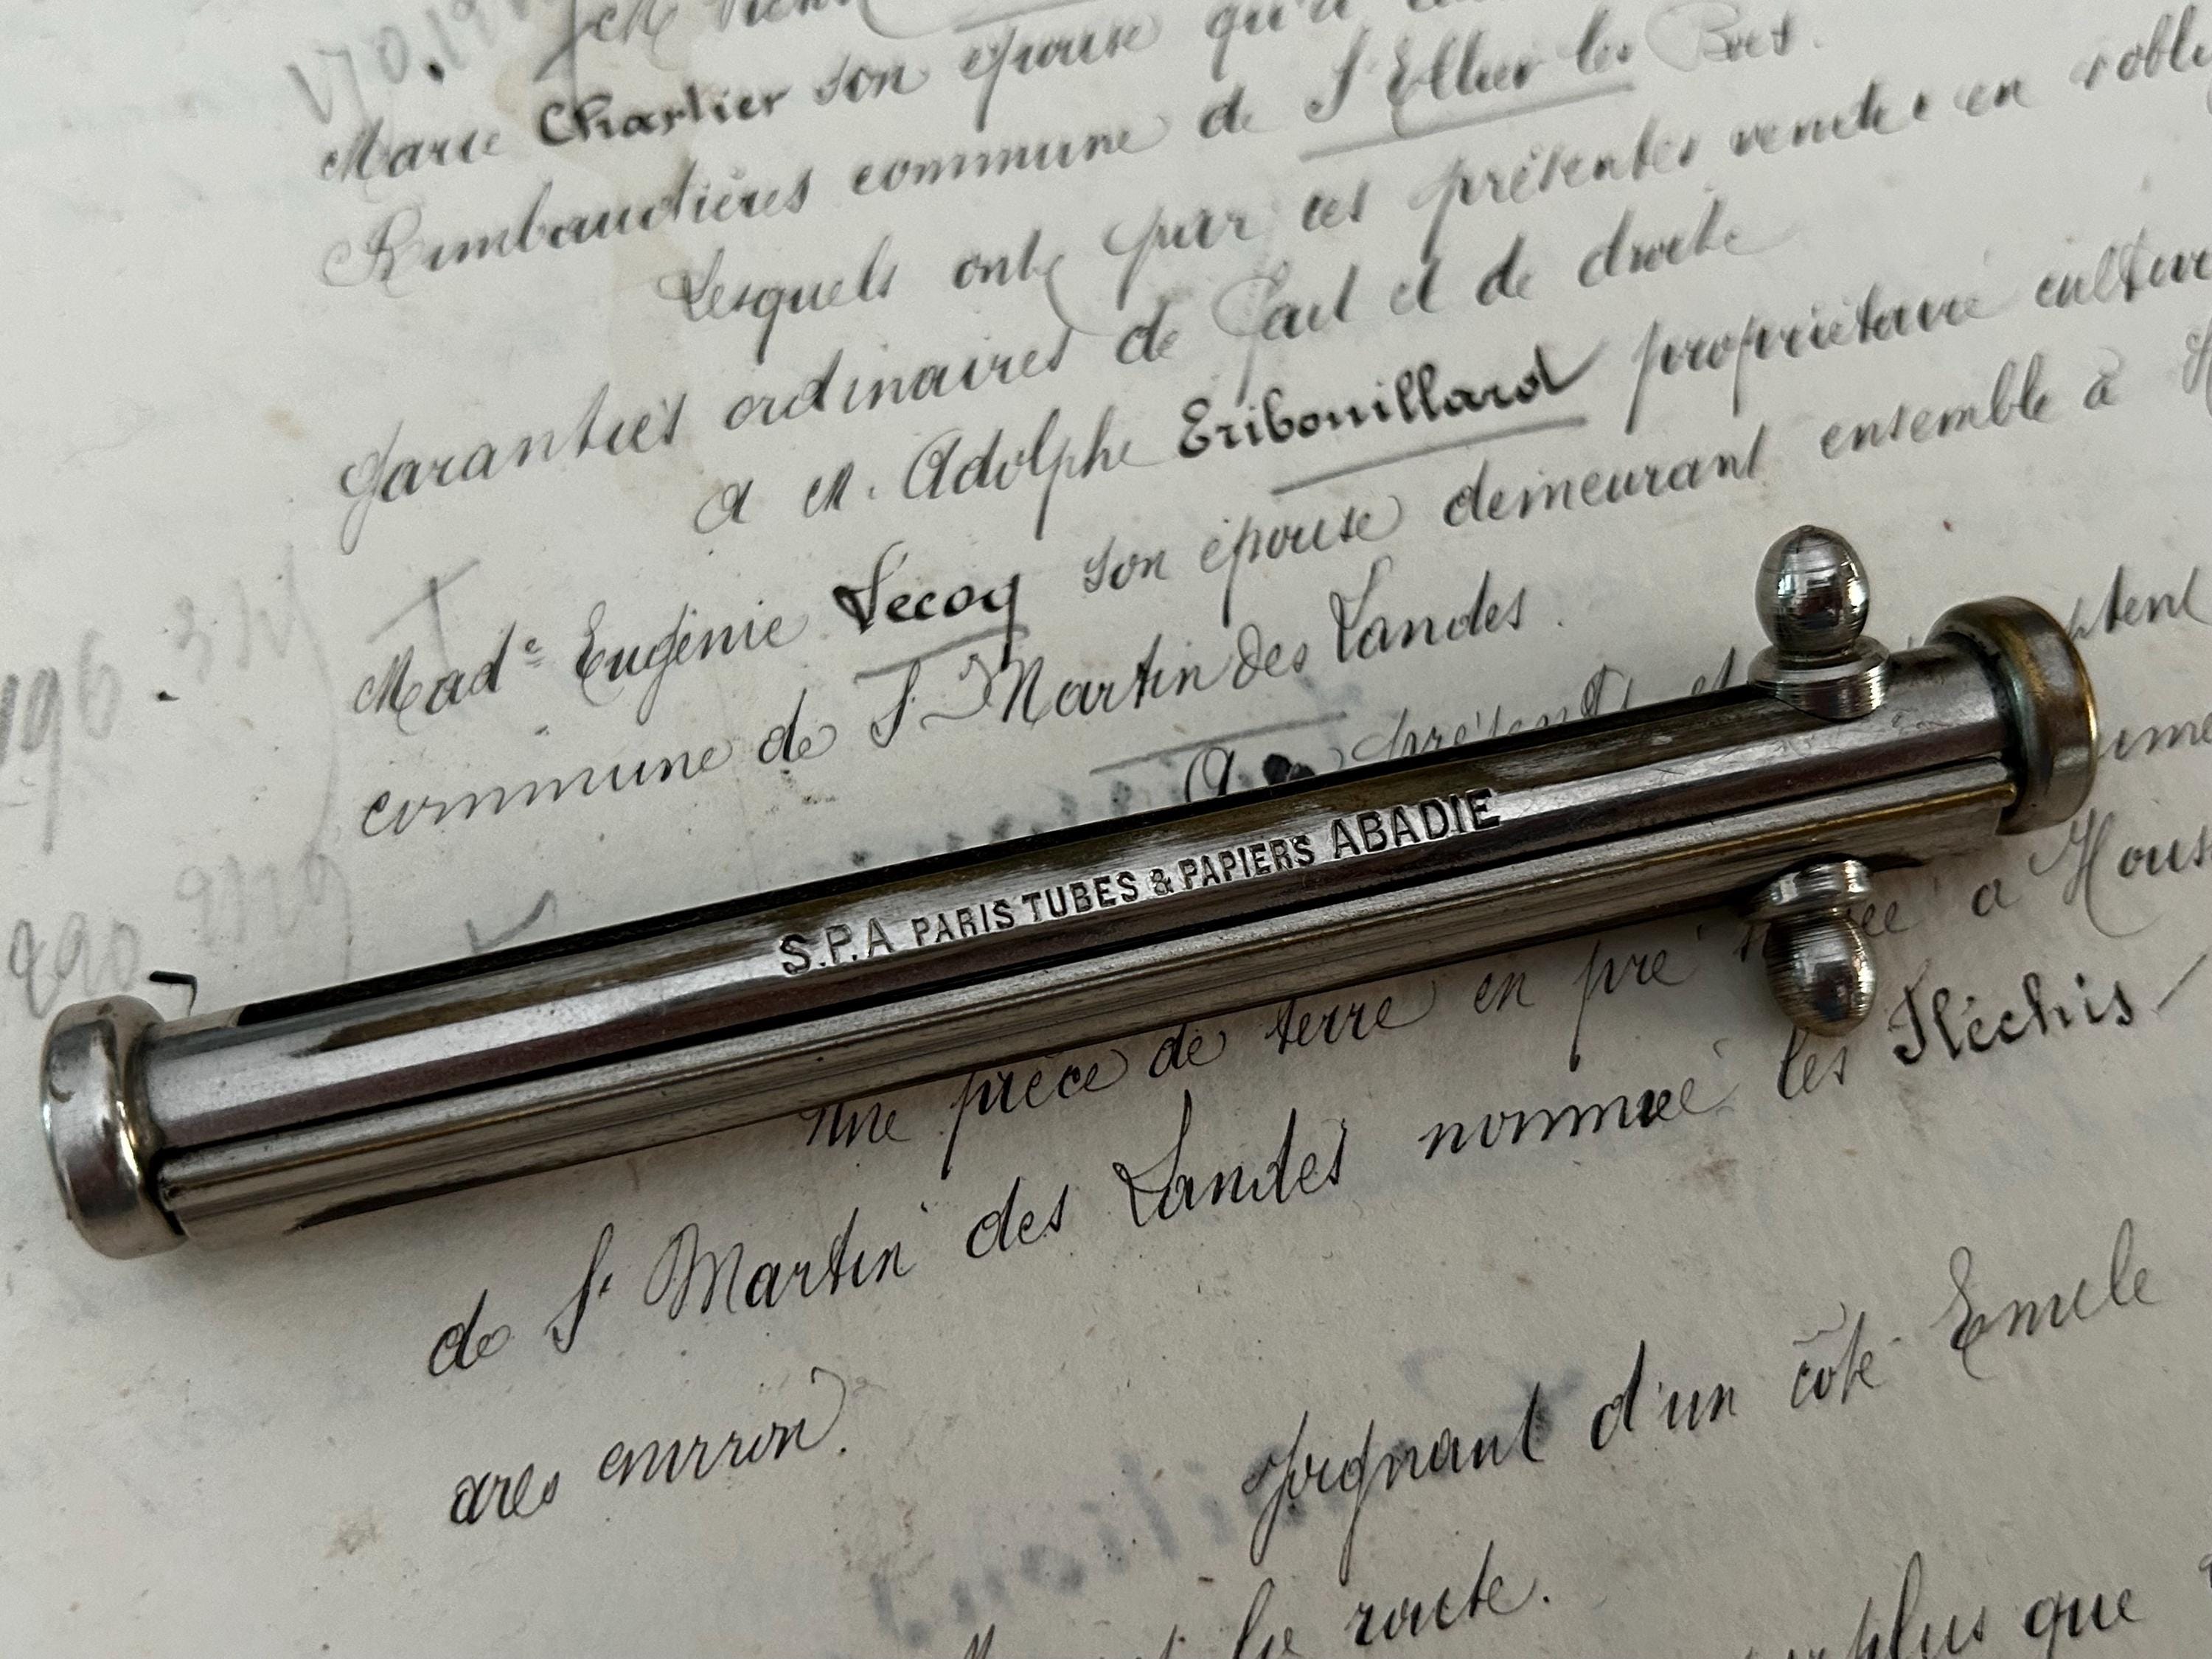 Marie Charlier son épouse qu'à
Rimbaudières commune de St Ellier les Bois.
Lesquels ont par ces présentes vendu en
garanties ordinaires de fait et de droite
a M. Adolphe Eribouillard propriétaire
Made Eugénie Lecoq son épouse demeurant ensemble à
commune de St Martin des Landes.
S.P.A PARIS TUBES & PAPIERS ABADIE
une pièce de terre en pré a
de St Martin des Landes nommée les Fléchis
ares environ.
Joignant d'un côté Emile
la route.
plus que